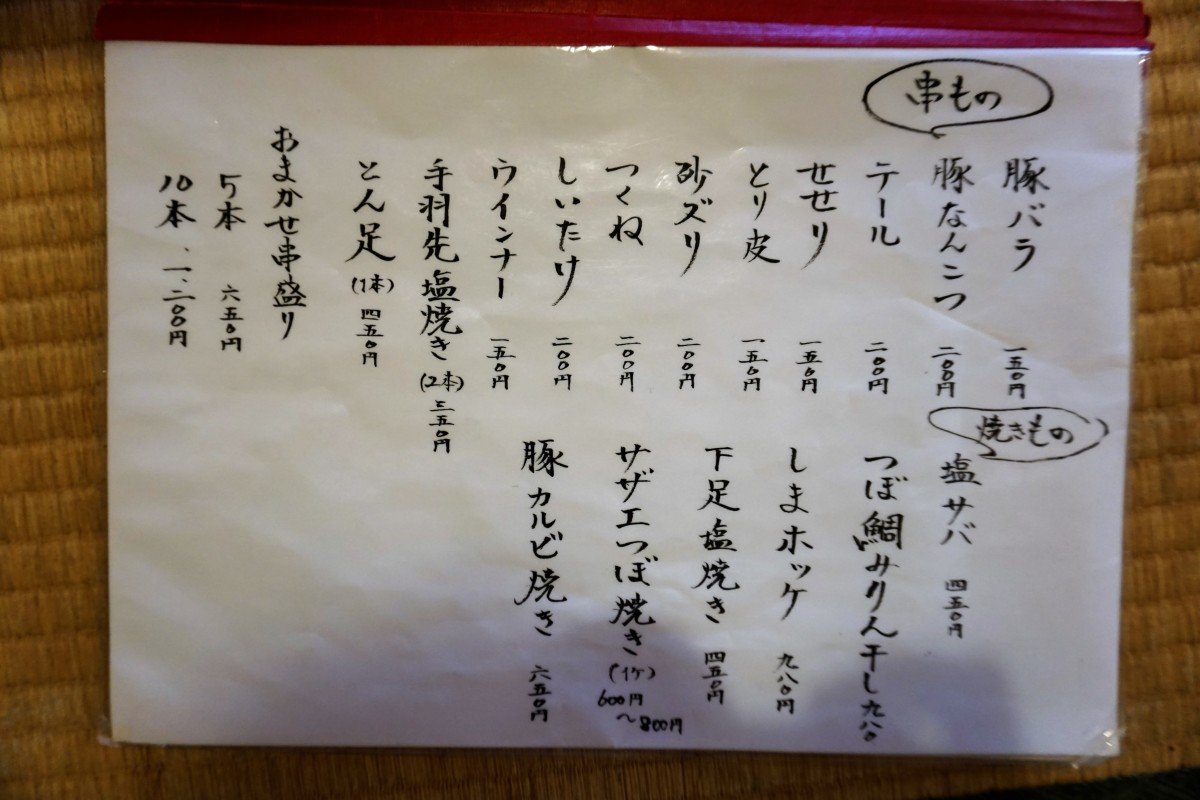 串もの
豚バラ 一五〇円
豚なんこつ 二〇〇円
テール 二〇〇円
せせり 一五〇円
とり皮 一五〇円
砂ズリ 二〇〇円
つくね 二〇〇円
しいたけ 二〇〇円
ウインナー 一五〇円
手羽先塩焼き(2本) 三五〇円
とん足(1本) 四五〇円
おまかせ串盛り
5本 六五〇円
10本 一、二〇〇円
焼きもの
塩サバ 四五〇円
つぼ鯛みりん干し 九八〇
しまホッケ 九八〇円
下足塩焼き 四五〇円
サザエつぼ焼き(1ケ) 600円～800円
豚カルビ焼き 六五〇円